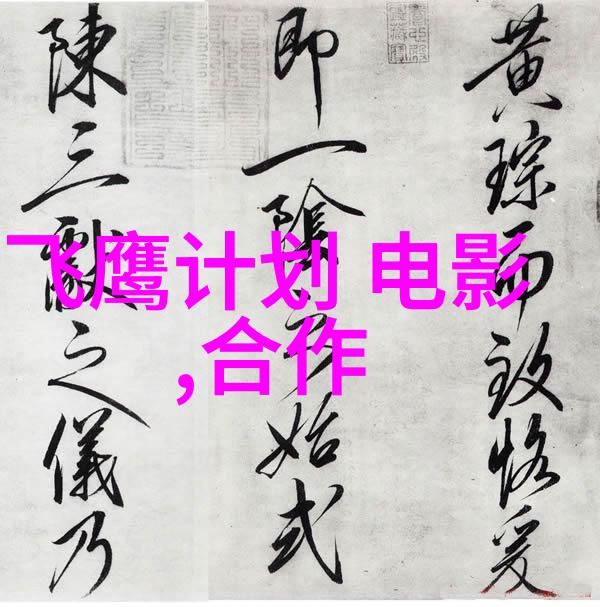 黃琮而致恪爰
即一陰始式
陳三獻之儀乃
飞鹰计划 电影
,合作